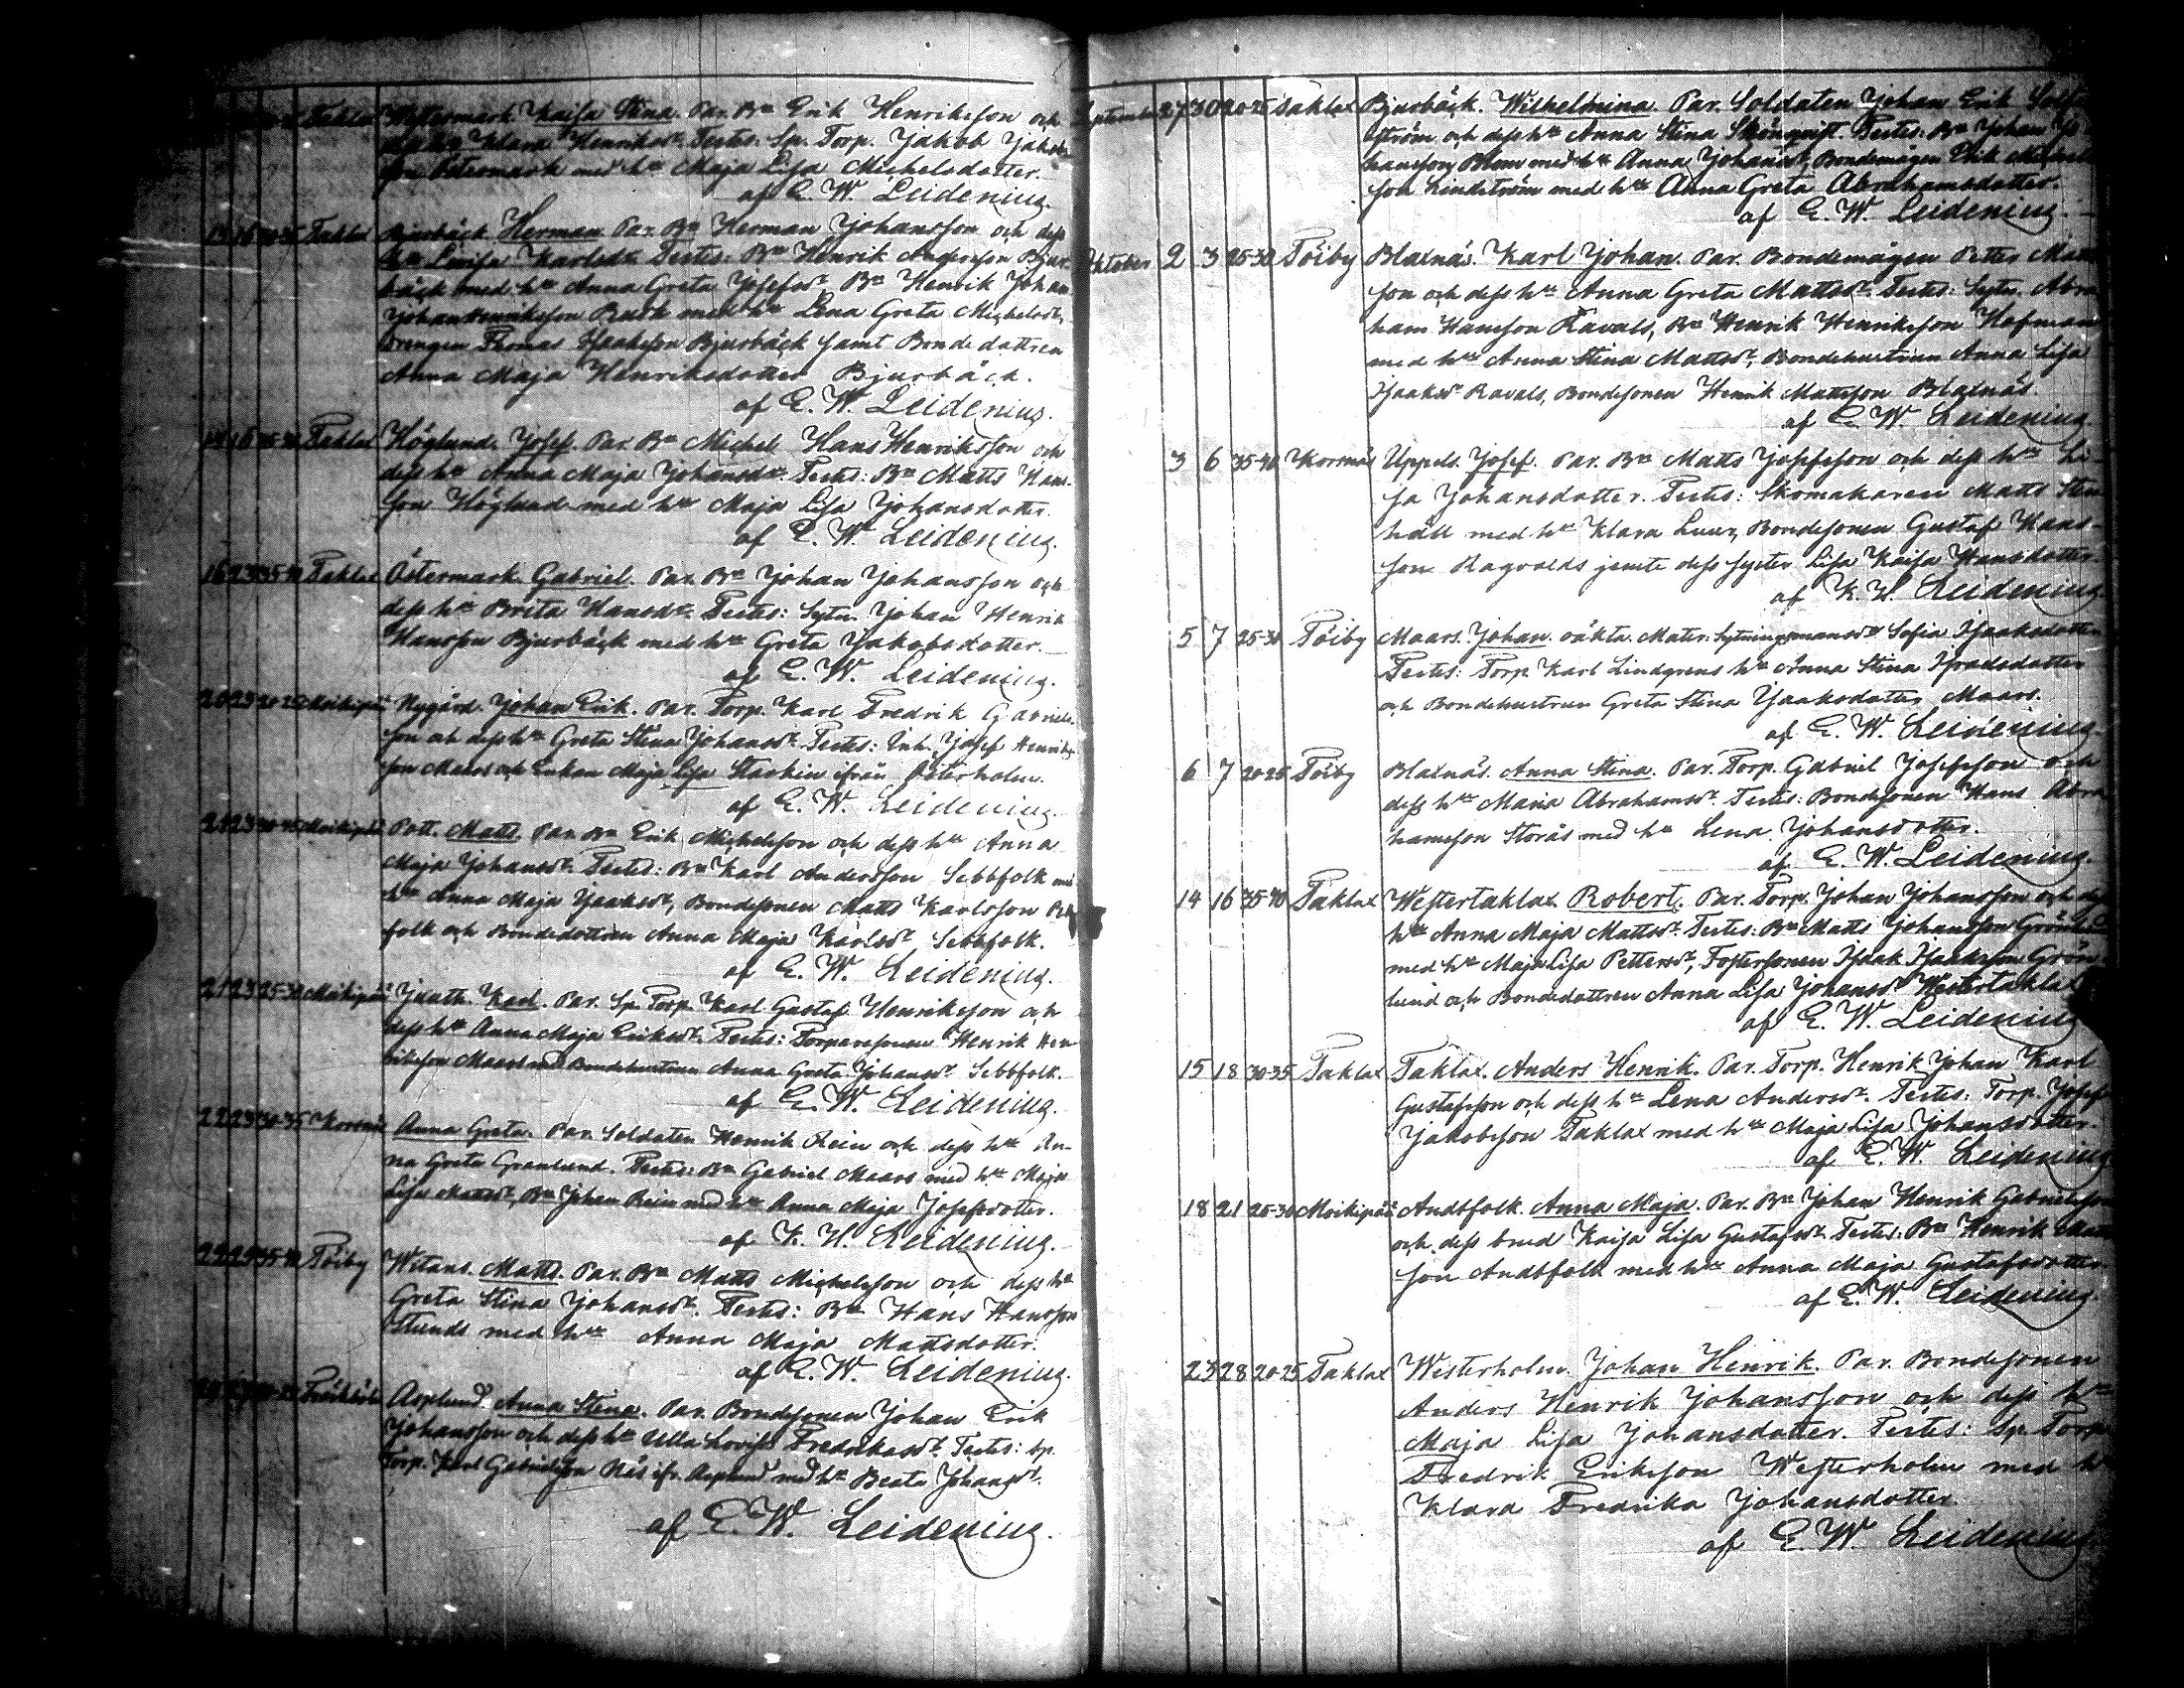 Taklax Westermark. Kaisa Stina. Par. Bn Erik Henriksson och
Klara Henriksdr. Testes: Sp. Torp. Jakob Jakobs
son Östermark med hu Maja Lisa Michelsdotter.
af E. W. Leidenius.
Taklax Bjurbäck. Herman. Par. Bn Herman Johansson och dess
hu Lovisa Karlsdr. Testes: Bn Henrik Andersson Bjur-
bäck med hu Anna Greta Josefsdr, Bn Henrik Johan
Johan Henriksson Buck med hu Lena Greta Michelsdr,
Drengen Thomas Isaksson Bjurbäck samt Bondedottren
Anna Maja Henriksdotter Bjurbäck.
af E. W. Leidenius.
14 16 Taklax Höglund. Josef. Par. Bn Michel Hans Henriksson och
dess hu Anna Maja Johansdr. Testes: Bn Matts Hans-
son Höglund med hu Maja Lisa Johansdotter.
af E. W. Leidenius.
16 23 35-40 Taklax Östermark. Gabriel. Par. Bn Johan Johansson och
dess hu Brita Hansdr. Testes: Sytn. Johan Henrik
Hansson Bjurbäck med hu Greta Jakobsdotter.
af E. W. Leidenius.
20 23 20-25 Moikipää Nygård. Johan Erik. Par. Torp. Karl Fredrik Gabriels-
son och dess hu Greta Stina Johansdr. Testes: Inh. Josef Henriks-
son Maars och Enkan Maja Lisa Starkin ifrån Österholm.
af E. W. Leidenius.
Moikipää Pott. Matts. Par. Bn Erik Michelsson och dess hu Anna
Maja Johansdr. Testes: Bn Karl Andersson Sebbfolk med
hu Anna Maja Isaksdr, Bondesonen Matts Karlsson Sebb-
folk och Bondedottren Anna Maja Karlsdr Sebbfolk.
af E. W. Leidenius.
21 23 25-30 Moikipää Juuth. Karl. Par. Sp. Torp. Karl Gustaf Henriksson och
dess hu Anna Maja Eriksdr. Testes: Torparesonen Henrik Hen-
riksson Maars med Bondehustrun Anna Greta Johansdr Sebbfolk.
af E. W. Leidenius.
22 23 30-35 Korsnäs Anna Greta. Par. Soldaten Henrik Rein och dess hu An-
na Greta Granlund. Testes: Bn Gabriel Maars med hu Maja
Lisa Mattsdr, Bn Johan Rein med hu Anna Maja Josefsdotter.
af K. H. Leidenius.
Töiby Witans. Matts. Par. Bn Matts Michelsson och dess hu
Greta Stina Johansdr. Testes: Bn Hans Hansson
Stunds med hu Anna Maja Mattsdotter.
af E. W. Leidenius.
Asplund. Anna Stina. Par. Bondesonen Johan Erik
Johansson och dess hu Ulla Lovisa Fredriksdr. Testes: Sp.
Torp. Karl Gabrielsson Näs ifr. Asplund med hu Beata Johansdr.
af E. W. Leidenius.
September 27 30 20-25 Taklax Bjurbäck. Wilhelmina. Par. Soldaten Johan Erik
ström och dess hu Anna Stina Skönqvist. Testes: Bn Johan Jo-
hansson Blom med hu Anna Johansdr, Bondemågen Erik Michels-
son Lindström med hu Anna Greta Abrahamsdotter.
af E. W. Leidenius.
Oktober 2 3 25-30 Töiby Blaxnäs. Karl Johan. Par. Bondemågen Petter Matts-
son och dess hu Anna Greta Mattsdr. Testes: Sytn. Abra-
ham Hansson Ravals, Bn Henrik Henriksson Hofman
med hu Anna Stina Mattsdr, Bondehustrun Anna Lisa
Isaksdr Ravals, Bondesonen Henrik Mattsson Blaxnäs.
af E. W. Leidenius.
3 6 35-40 Korsnäs Uppels. Josef. Par. Bn Matts Josefsson och dess hu Li-
sa Johansdotter. Testes: Skomakaren Matts Sten-
häll med hu Klara Luur, Bondesonen Gustaf Hans-
son Ragvalds jemte dess syster Lisa Kaisa Hansdotter.
af K. H. Leidenius.
5 7 25-30 Töiby Maars. Johan. oäkta. Mater: Sytningsmansdr Sofia Isaksdotter
Testes: Torp. Karl Lindgrens hu Anna Stina Israelsdotter
och Bondehustrun Greta Stina Isaksdotter Maars.
af E. W. Leidenius.
6 7 20-25 Töiby Blaxnäs. Anna Stina. Par. Torp. Gabriel Josefsson och
dess hu Maria Abrahamsdr. Testes: Bondesonen Hans Abra-
hamsson Storås med hu Lena Johansdotter.
af E. W. Leidenius.
14 16 35-40 Taklax Westertaklax. Robert. Par. Torp. Johan Johansson och dess
hu Anna Maja Mattsdr. Testes: Bn Matts Johansson Grönlund
med hu Maja Lisa Pettersdr, Fostersonen Isaak Isaaksson Grön-
lund och Bondedottren Anna Lisa Johansdr Westertaklax
af E. W. Leidenius.
15 18 30-35 Taklax Taklax. Anders Henrik. Par. Torp. Henrik Johan Karl
Gustafsson och dess hu Lena Andersdr. Testes: Torp. Josef
Jakobsson Taklax med hu Maja Lisa Johansdotter.
af E. W. Leidenius.
18 21 25-30 Moikipää Andtfolk. Anna Maja. Par. Bn Johan Henrik Gabrielsson
och dess brud Kaisa Lisa Gustafsdr. Testes: Bn Henrik Matts-
son Andtfolk med hu Anna Maja Gustafsdotter.
af E. W. Leidenius.
23 28 20-25 Taklax Westerholm. Johan Henrik. Par. Bondesonen
Anders Henrik Johansson och dess hu
Maja Lisa Johansdotter. Testes: Sp. Torp.
Fredrik Eriksson Westerholm med hu
Klara Fredrika Johansdotter.
af E. W. Leidenius.